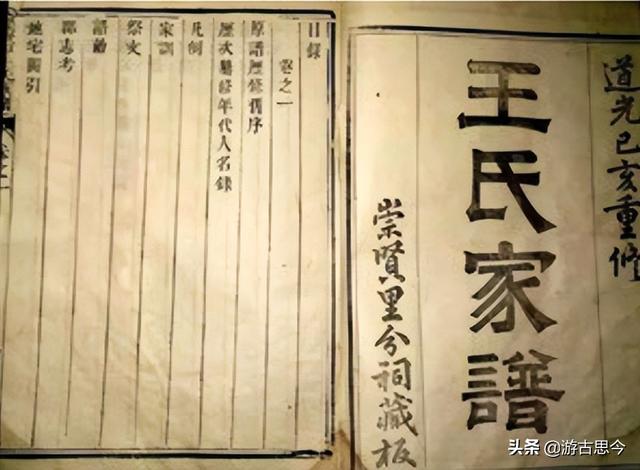 道光己亥重脩
王氏家譜
崇賢里分祠藏板
目錄
卷之一
原譜歷修舊序
歷次纂修年代人名錄
凡例
家訓
祭文
誥勅
郡志考
宅圖引
头条 @游古思今